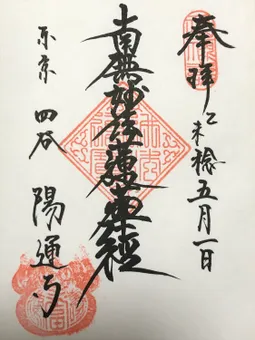 奉拝 乙未稔五月一日
南無妙法蓮華経
東京 四谷 陽運寺